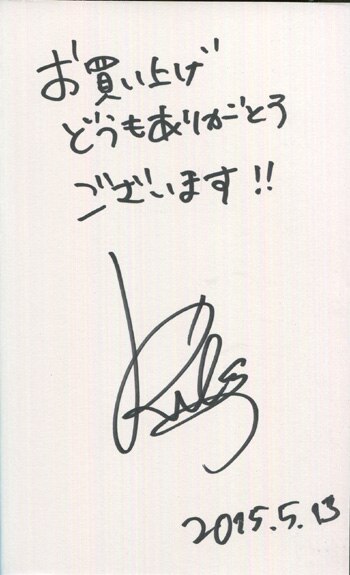 お買い上げ
どうもありがとう
ございます!!
2015.5.13